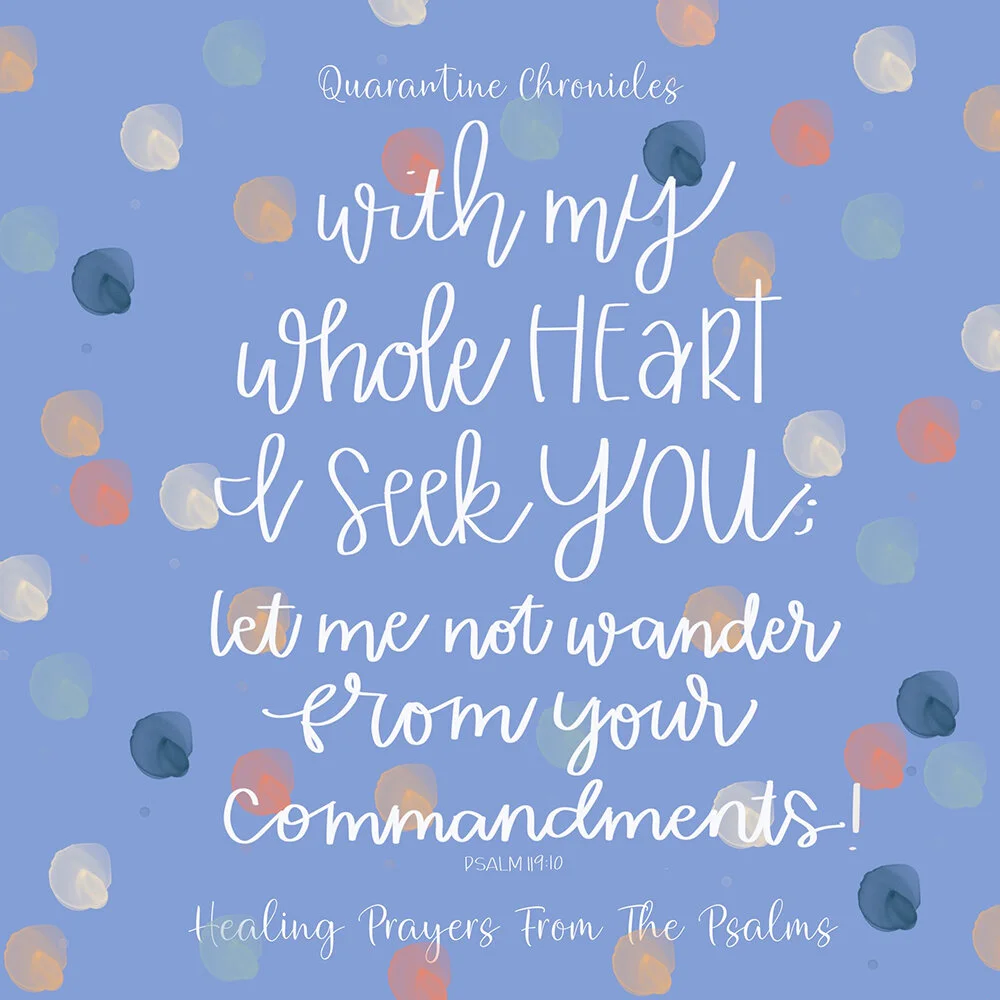 Quarantine Chronicles
with my
whole HEaRT
I seek YOU;
let me not wander
from your
Commandments!
PSALM 119:10
Healing Prayers From The Psalms